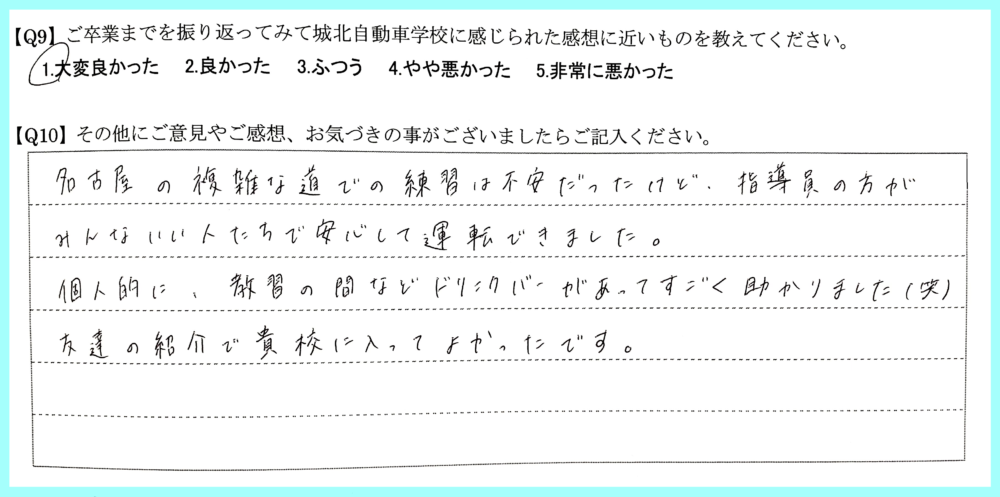 【Q9】ご卒業までを振り返ってみて城北自動車学校に感じられた感想に近いものを教えてください。
1.大変良かった 2.良かった 3.ふつう 4.やや悪かった 5.非常に悪かった
【Q10】その他にご意見やご感想、お気づきの事がございましたらご記入ください。
名古屋の複雑な道での練習は不安だったけど、指導員の方が
みんないい人たちで安心して運転できました。
個人的に、教習の間などドリンクバーがあってすごく助かりました(笑)
友達の紹介で貴校に入ってよかったです。